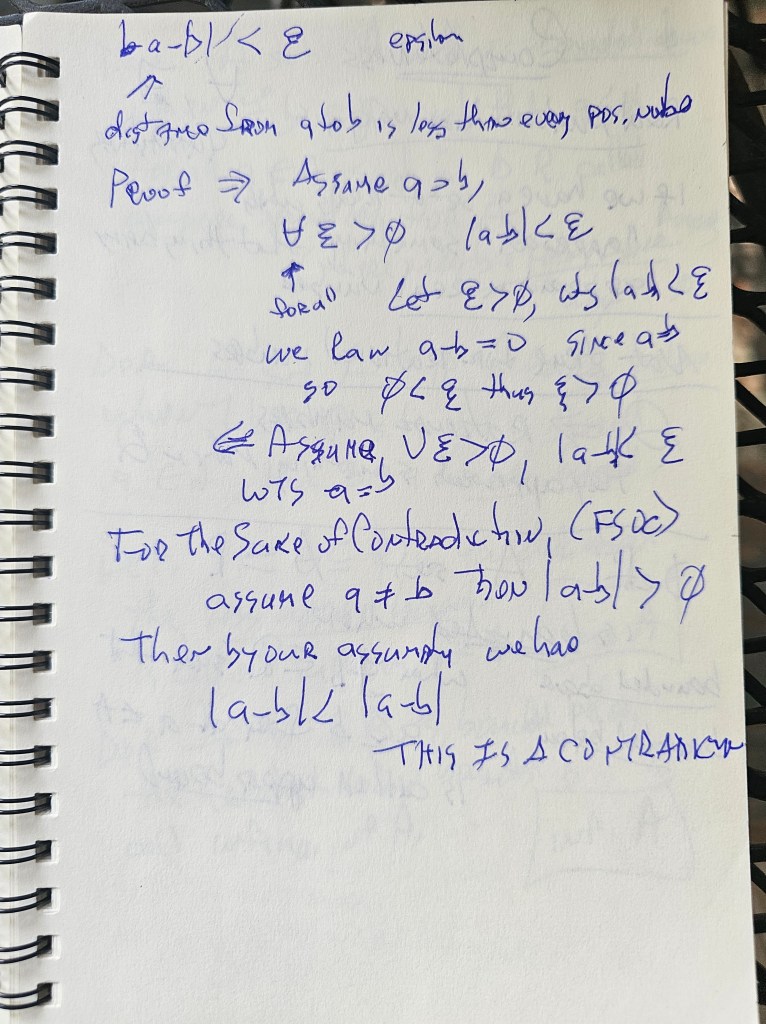 |a-b| < ε epsilon
distance from a to b is less than every pos. number
Proof ⇒ Assume a=b,
∀ε>∅ |a-b|<ε
for all Let ε>∅, wts |a-b|<ε
we have a-b=0 since a=b
so ∅<ε thus ε>∅
⇐ Assume, ∀ε>∅, |a-b|< ε
WTS a=b
For the Sake of Contradiction, (FSOC)
assume a≠b Then |a-b|>∅
Then by our we have
|a-b|< |a-b|
THIS IS A CONTRADICTION